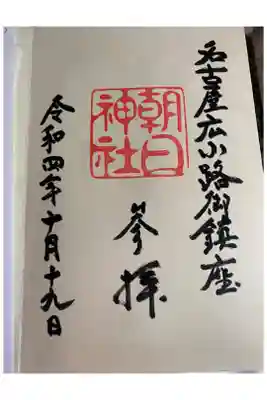 名古屋広小路御鎮座
朝日
神社
参拝
令和四年十月十九日